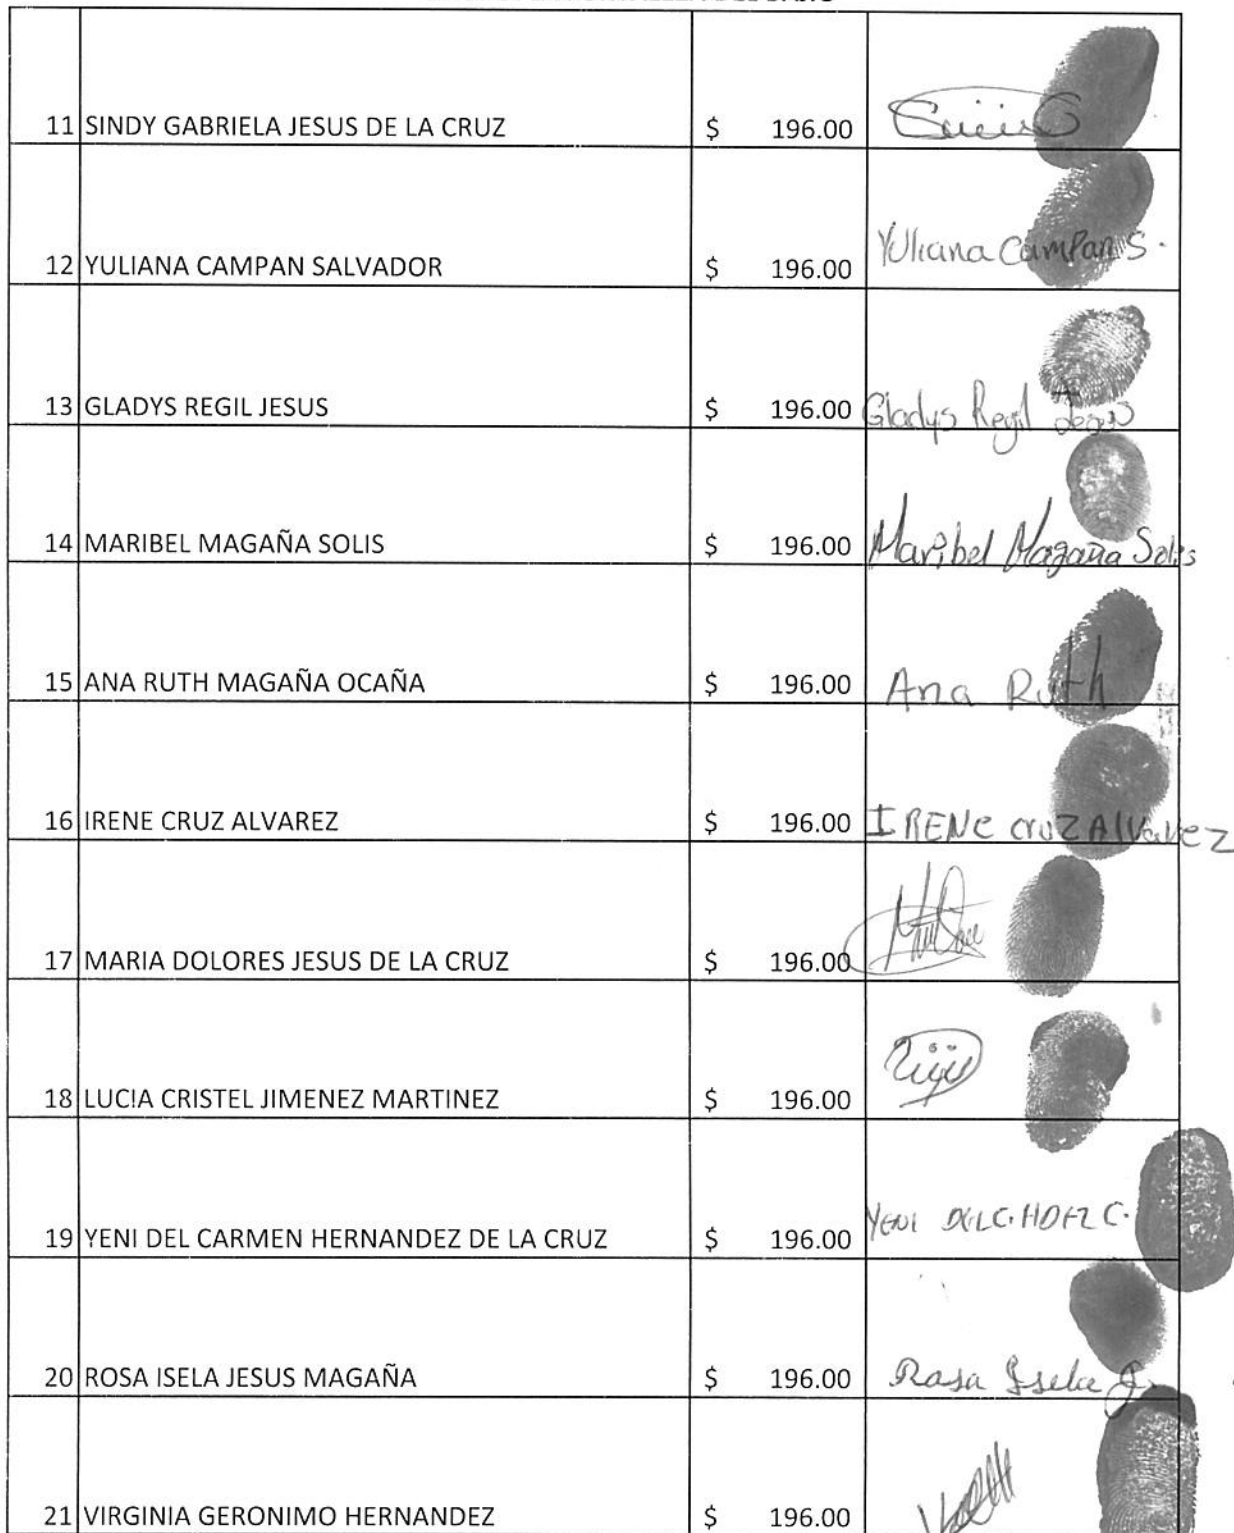 11 SINDY GABRIELA JESUS DE LA CRUZ $ 196.00
12 YULIANA CAMPAN SALVADOR $ 196.00 Yuliana Campan S.
13 GLADYS REGIL JESUS $ 196.00 Gladys Regil Jesus
14 MARIBEL MAGAÑA SOLIS $ 196.00 Maribel Magaña Solis
15 ANA RUTH MAGAÑA OCAÑA $ 196.00 Ana Ruth
16 IRENE CRUZ ALVAREZ $ 196.00 IRENE cruz Alvarez
17 MARIA DOLORES JESUS DE LA CRUZ $ 196.00
18 LUCIA CRISTEL JIMENEZ MARTINEZ $ 196.00
19 YENI DEL CARMEN HERNANDEZ DE LA CRUZ $ 196.00 YENI DEL C. HDEZ C.
20 ROSA ISELA JESUS MAGAÑA $ 196.00 Rosa Isela J.
21 VIRGINIA GERONIMO HERNANDEZ $ 196.00